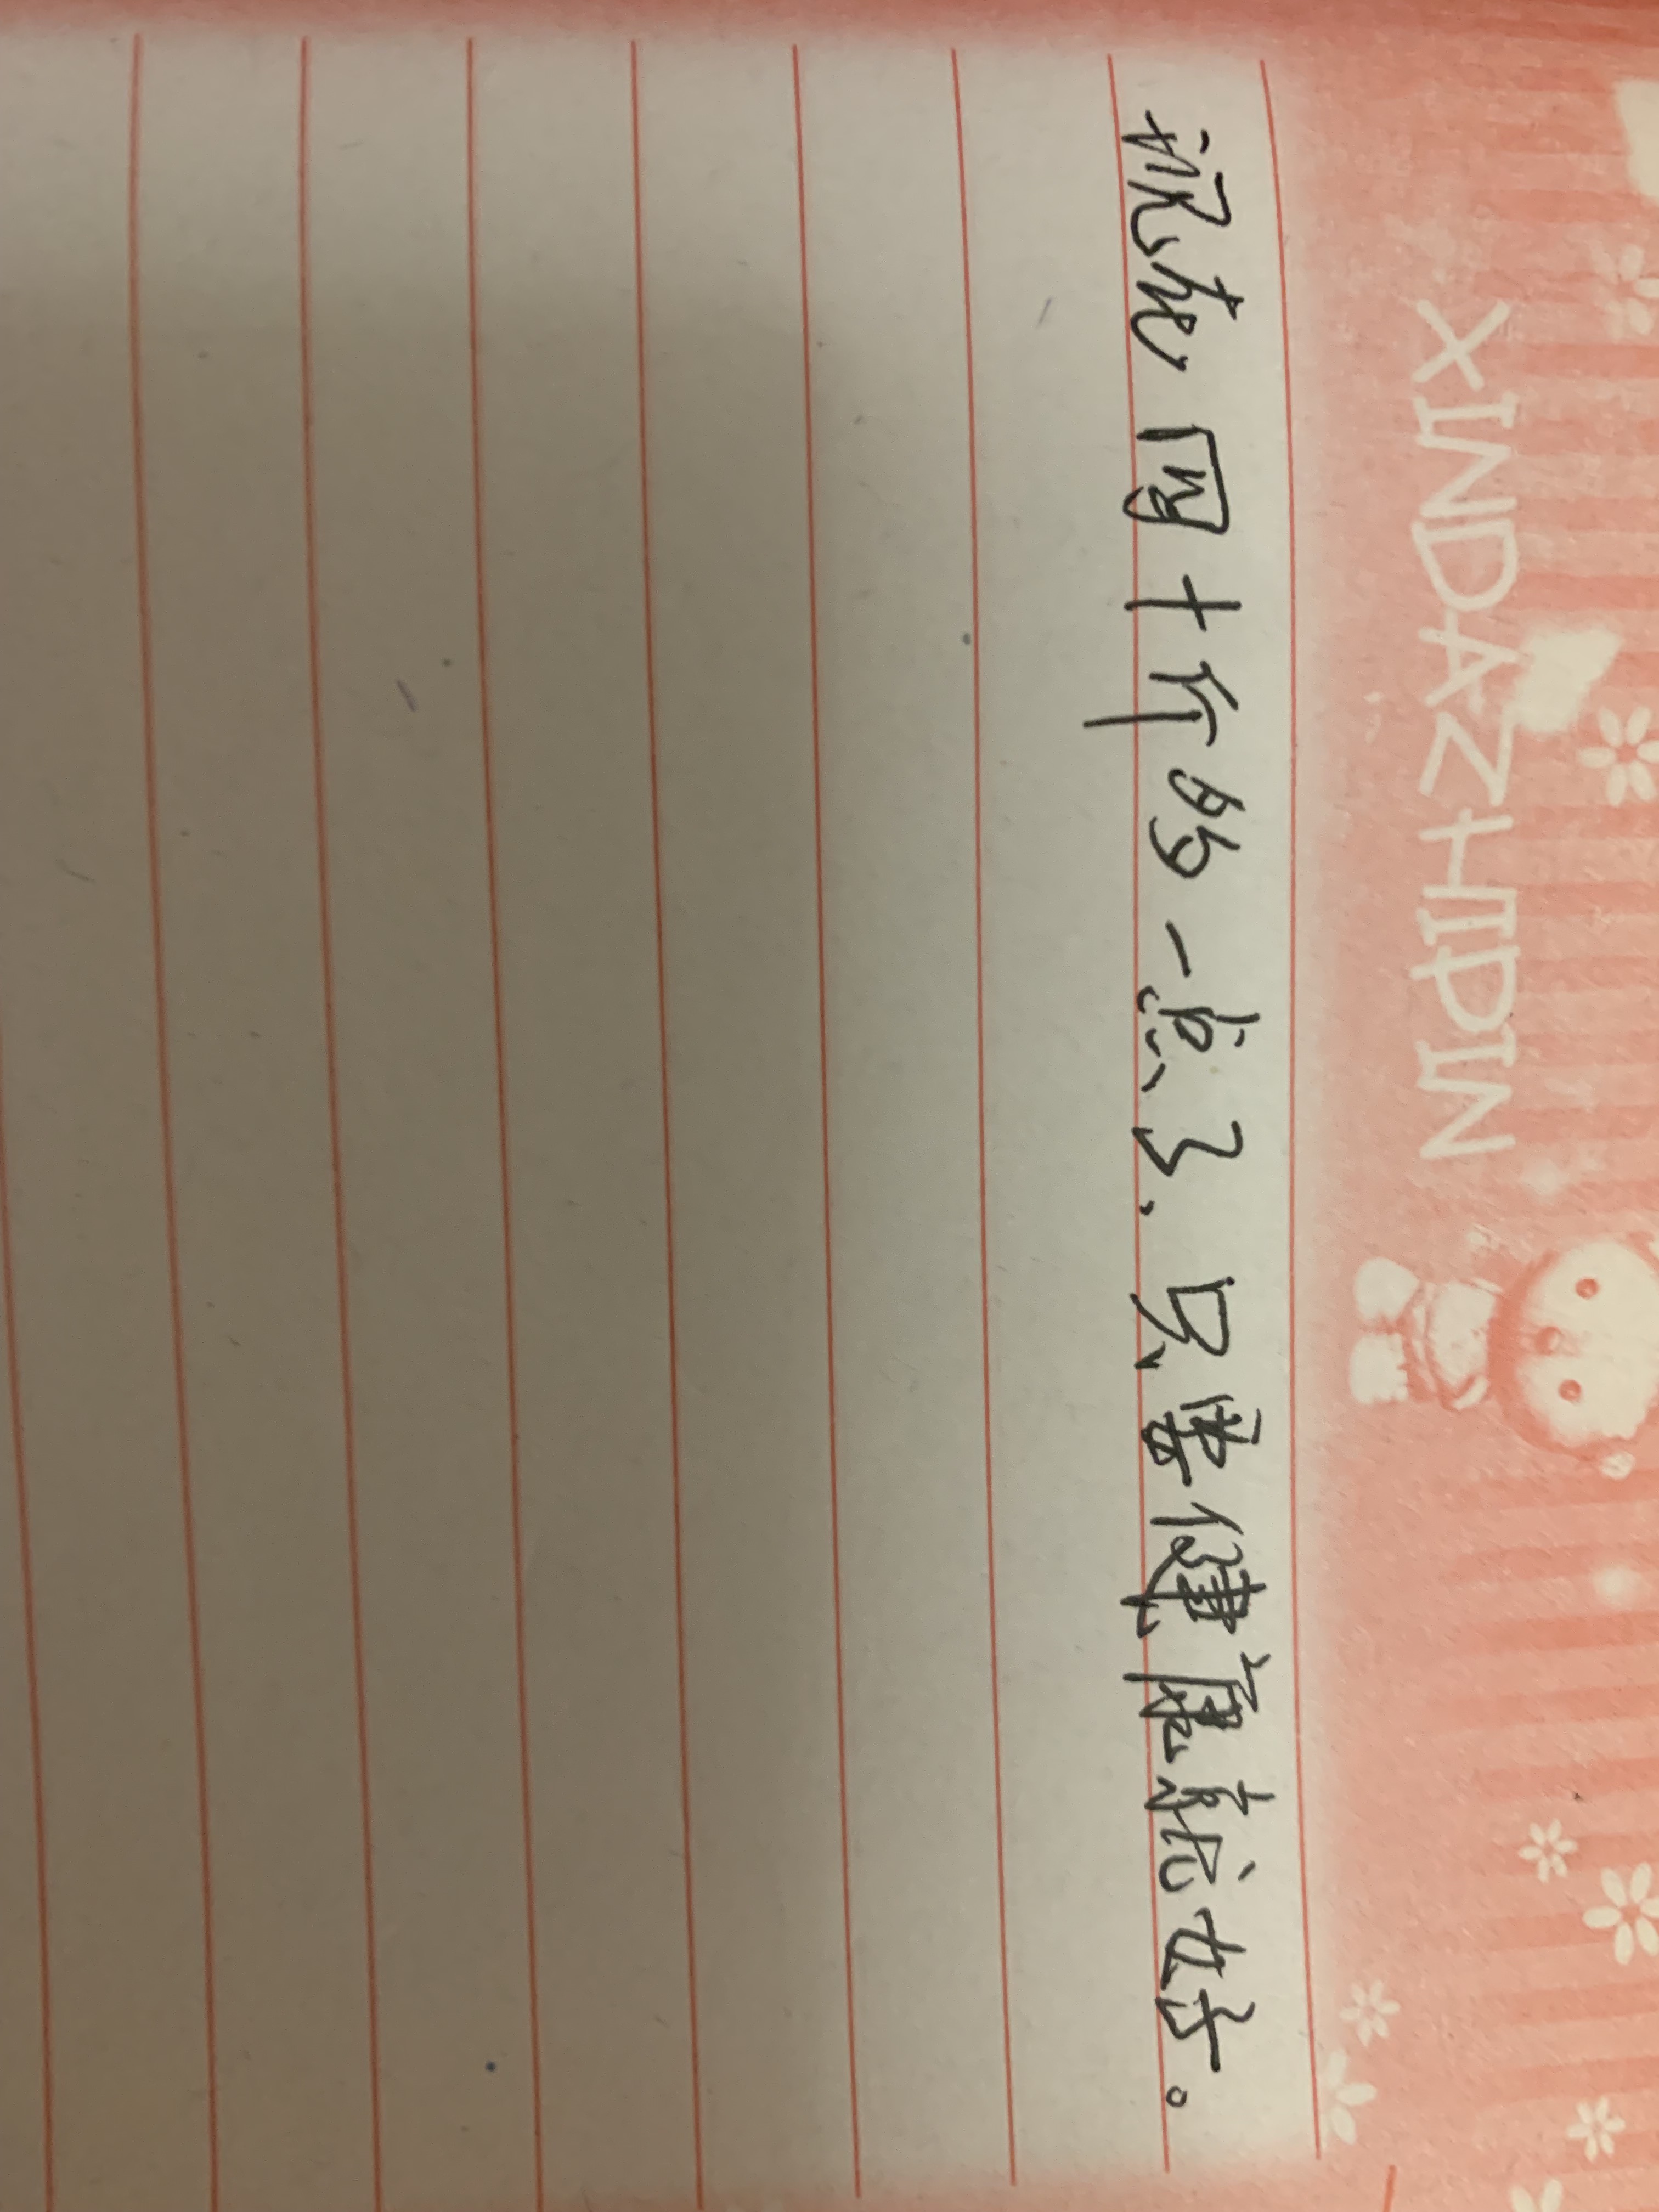 XINDAZHIPIN
沉老四十斤的一点了.只要健康就好。